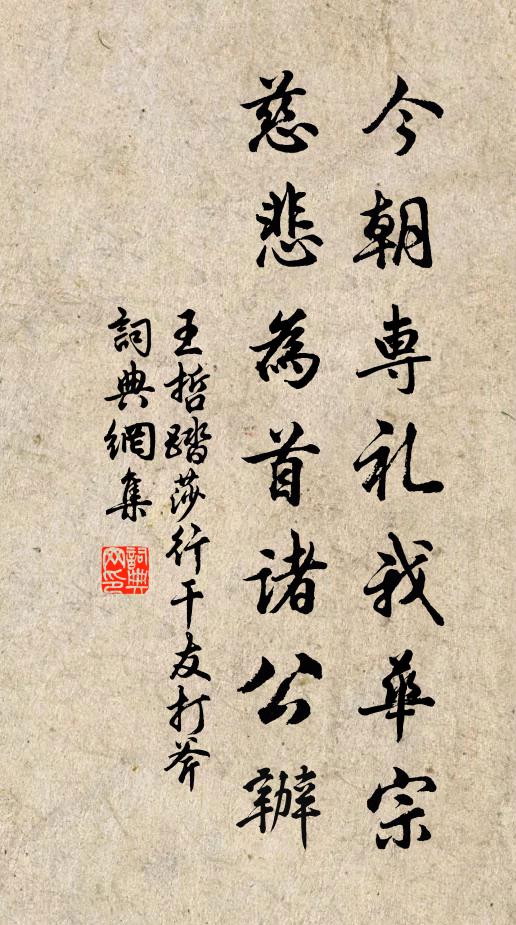 今朝専礼我華宗
慈悲為首諸公辦
王哲踏莎行干友打斧
詞典網集
詞典网印